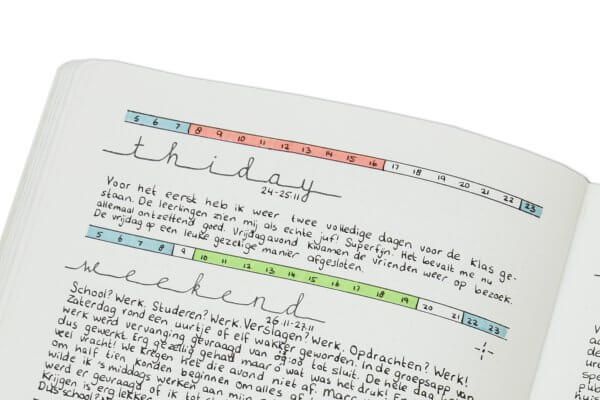 5 6 7 8 9 10 11 12 13 14 15 16 17 18 19 20 21 22 23
thiday
24-25.11
Voor het eerst heb ik weer twee volledige dagen voor de klas ge-
staan. De leerlingen zien mij als echte juf! Superfijn. Het bevalt me nu
allemaal ontzettend goed. Vrijdagavond kwamen de vrienden weer op bezoek.
De vrijdag op een leuke gezellige manier afgesloten.
5 6 7 8 9 10 11 12 13 14 15 16 17 18 19 20 21 22 23
weekend
26.11-27.11
School? Werk. Studeren? Werk. Verslagen? Werk. Opdrachten? Werk!
Zaterdag rond een uurtje of elf wakker geworden. In de groepsapp van
werk werd vervanging gevraagd van 09:00 tot sluit. De hele dag
dus gewerkt. Erg gezellig gehad maar o wat was het druk!
veel vracht! We kregen het die avond niet af.
om half tien konden beginnen om alles af
wilde ik 's middags werken aan mijn
werd er gevraagd of ik tot
Krijgen is erg lekker
Dus school?